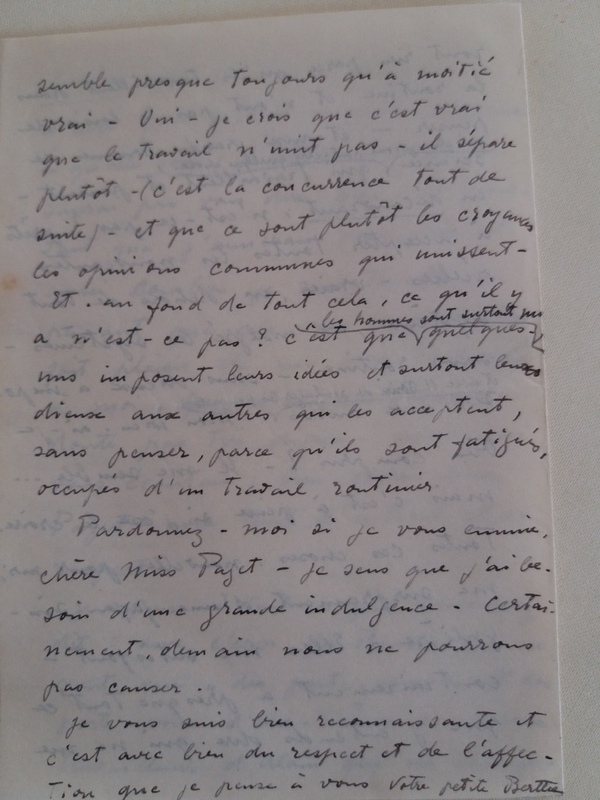 semble presque toujours qu'à moitié
vrai - Oui - je crois que c'est vrai
que le travail n'unit pas - il sépare
plutôt - (c'est la concurrence tout de
suite) - et que ce sont plutôt les croyances
les opinions communes qui unissent -
Et. au fond de tout cela, ce qu'il y
les hommes sont surtout
a n'est-ce pas? c'est que quelques-
uns imposent leurs idées et surtout leurs
dieux aux autres qui les acceptent,
sans penser, parce qu'ils sont fatigués,
occupés d'un travail routinier
Pardonnez-moi si je vous ennuie,
chère Miss Paget - je sens que j'ai be-
soin d'une grande indulgence - Certai-
nement, demain nous ne pourrons
pas causer.
je vous suis bien reconnaissante et
c'est avec bien du respect et de l'affec-
tion que je pense à vous Votre petite Berthe